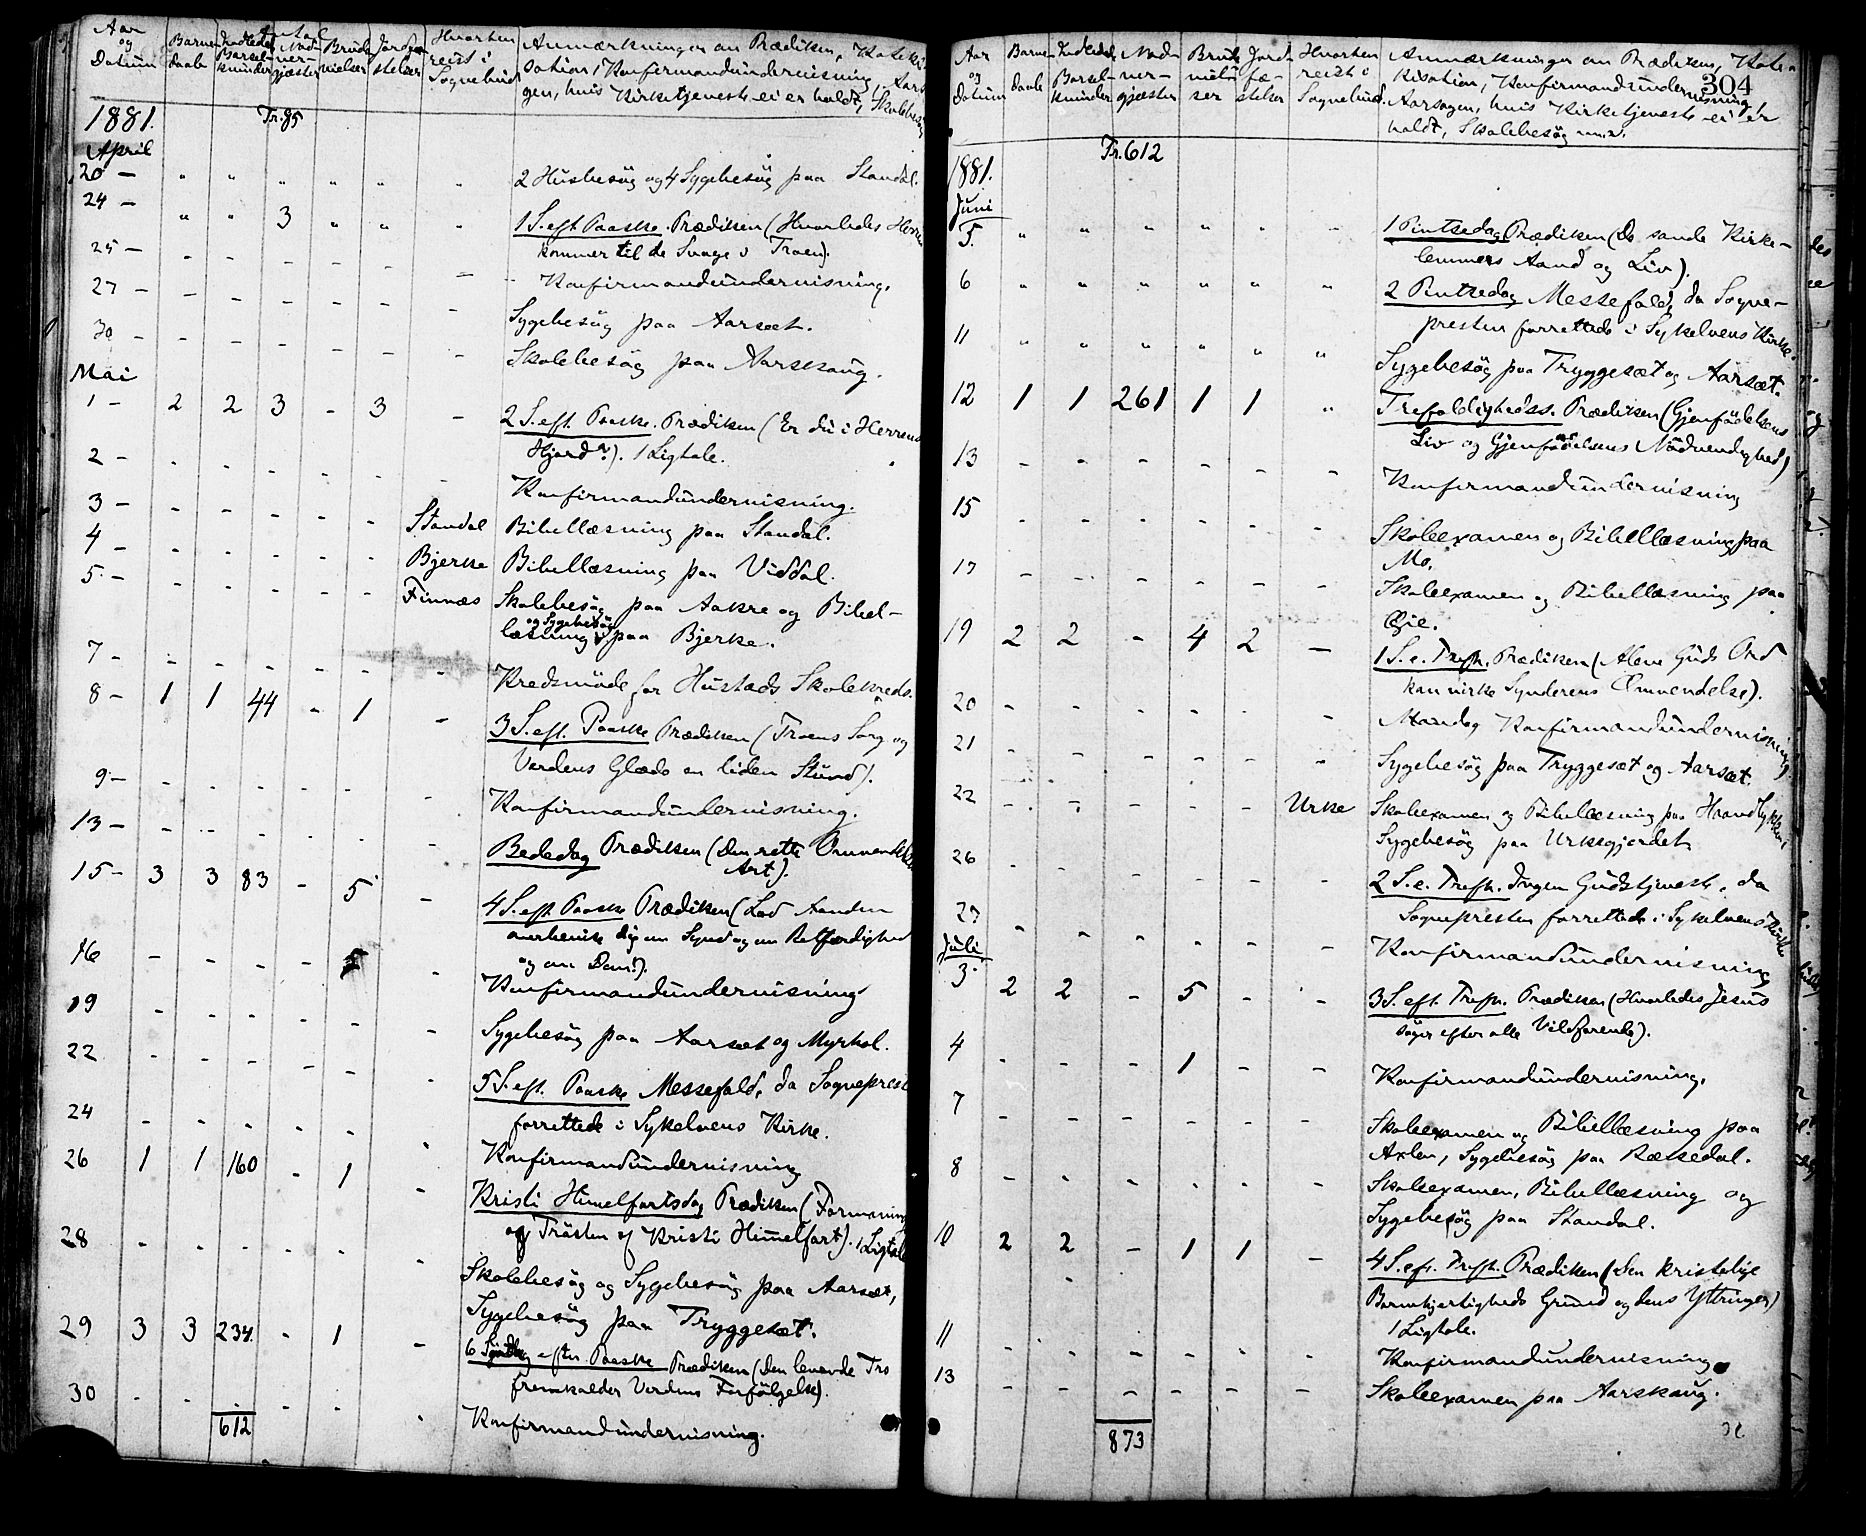 Aar og Datum | Barnedaab | Indledede Barselkvinder | Antal Nadvergjæster | Brudevielser | Jordfæstelser | Hvorhen reist i Sognebud | Anmærkninger om Prædiken, Katekisation, Konfirmandundervisning, Aarsagen, hvis Kirketjeneste ei er holdt, Skolebesøg
1881. Tr. 85
April
20 — " " " " " " 2 Husbesøg og 4 Sygebesøg paa Standal.
24 — " " 3 " " " 1 S. eft. Paaske. Prædiken (Hvorledes Herren
kommer til de Svage i Troen).
25 — - - - - - - Konfirmandundervisning.
27 — - - - - - - Sygebesøg paa Aarsæt.
30 — - - - - - - Skolebesøg paa Aarskoug.
Mai
1 - 2 2 3 - 3 - 2 S. eft. Paaske. Prædiken (Er du i Herrens
Hjord?). 1 Ligtale.
2 - - - - - - - Konfirmandundervisning.
3 - - - - - - Standal Bibellæsning paa Standal.
4 - - - - - - Bjerke Bibellæsning paa Viddal.
5 - - - - - - Finnæs Skolebesøg paa Aakre og Bibel-
læsning og Sygebesøg paa Bjerke.
7 - - - - - - - Kredsmøde for Hustads Skolekreds.
8 - 1 1 44 - 1 - 3 S. eft. Paaske Prædiken (Troens Sorg og
Verdens Glæde en liden Stund).
9 - - - - - - - Konfirmandundervisning.
13 - - - - - - - Bededag Prædiken (Den rette Omvendelses
Art).
15 - 3 3 83 - 5 - 4 S. eft. Paaske Prædiken (Lad Aanden
overbevise dig om Synd og om Retfærdighed
og om Dom!).
16 - - - - 5 - Konfirmandundervisning
19 - - - - - - Sygebesøg paa Aarsæt og Myrhol.
22 - - - - - - 5 S. eft. Paaske Messefald, da Sogneprest
forrettede i Sykelvens Kirke.
24 - - - - - - Konfirmandundervisning
26 1 1 160 - 1 - Kristi Himelfartsdag Prædiken (Formaning
og Trøsten af Kristi Himmelfart). 1 Ligtale
28 - - - - - - Skolebesøg og Sygebesøg paa Aarsæt,
Sygebesøg paa Tryggesæt.
29 3 3 234 - 1 - 6 Søndag efter Paaske Prædiken (Den levende Tro
fremkalder Verdens Forfølgelse).
30 - - - - - - Konfirmandundervisning.
612
Aar og Datum | Barnedaab | Indledede Barselkvinder | Nadvergjæster | Brudevielser | Jordfæstelser | Hvorhen reist i Sognebud. | Anmærkninger om Prædiken, Katekisation, Konfirmandundervisning Aarsagen, hvis Kirketjeneste ei er holdt, Skolebesøg m.m.
304
Tr. 612
1881.
Juni
5. " " " " " " 1 Pintsedag Prædiken (De sande Kirke-
lemmers Aand og Liv).
6 " " " " " " 2 Pintsedag Messefald, da Sogne-
presten forrettede i Sykelvens Kirke.
11 " " " " " " Sygebesøg paa Tryggesæt og Aarsæt.
12 1 1 261 1 1 " Trefoldighedss. Prædiken (Gjenfødelsens
Liv og Gjenfødelsens Nødvendighed)
13 - - - - - - Konfirmandundervisning
15 - - - - - - Skoleexamen og Bibellæsning paa
Mo.
17 - - - - - - Skoleexamen og Bibellæsning paa
Øie.
19 2 2 - 4 2 - 1 S. e. Trefh. Prædiken (Alene Guds Ord
kan virke Synderens Omvendelse).
20 - - - - - - Mandag Konfirmandundervisning
21 - - - - - - Sygebesøg paa Tryggesæt og Aarsæt.
22 - - - - - Urke Skoleexamen og Bibellæsning paa Haandlykken,
Sygebesøg paa Urkegjerdet
26 - - - - - - 2 S. e. Trefh. Ingen Gudstjeneste, da
Sognepresten forrettede i Sykelvens Kirke
27 - - - - - - Konfirmandundervisning
Juli
3. 2 2 - 5 - - 3 S. eft. Trefh. Prædiken (Hvorledes Jesus
søger efter alle Vildfarende).
4 - - - 1 - - Konfirmandundervisning.
7 - - - - - - Skoleexamen og Bibellæsning paa
Axlen, Sygebesøg paa Ræssedal.
8 - - - - - - Skoleexamen, Bibellæsning og
Sygebesøg paa Standal.
10 2 2 - 1 1 - 4 S. eft. Trefh. Prædiken (Den kristelige
Barmhjertigheds Grund og dens Yttringer)
1 Ligtale.
11 - - - - - - Konfirmandundervisning
13 - - - - - - Skoleexamen paa Aarskoug.
873